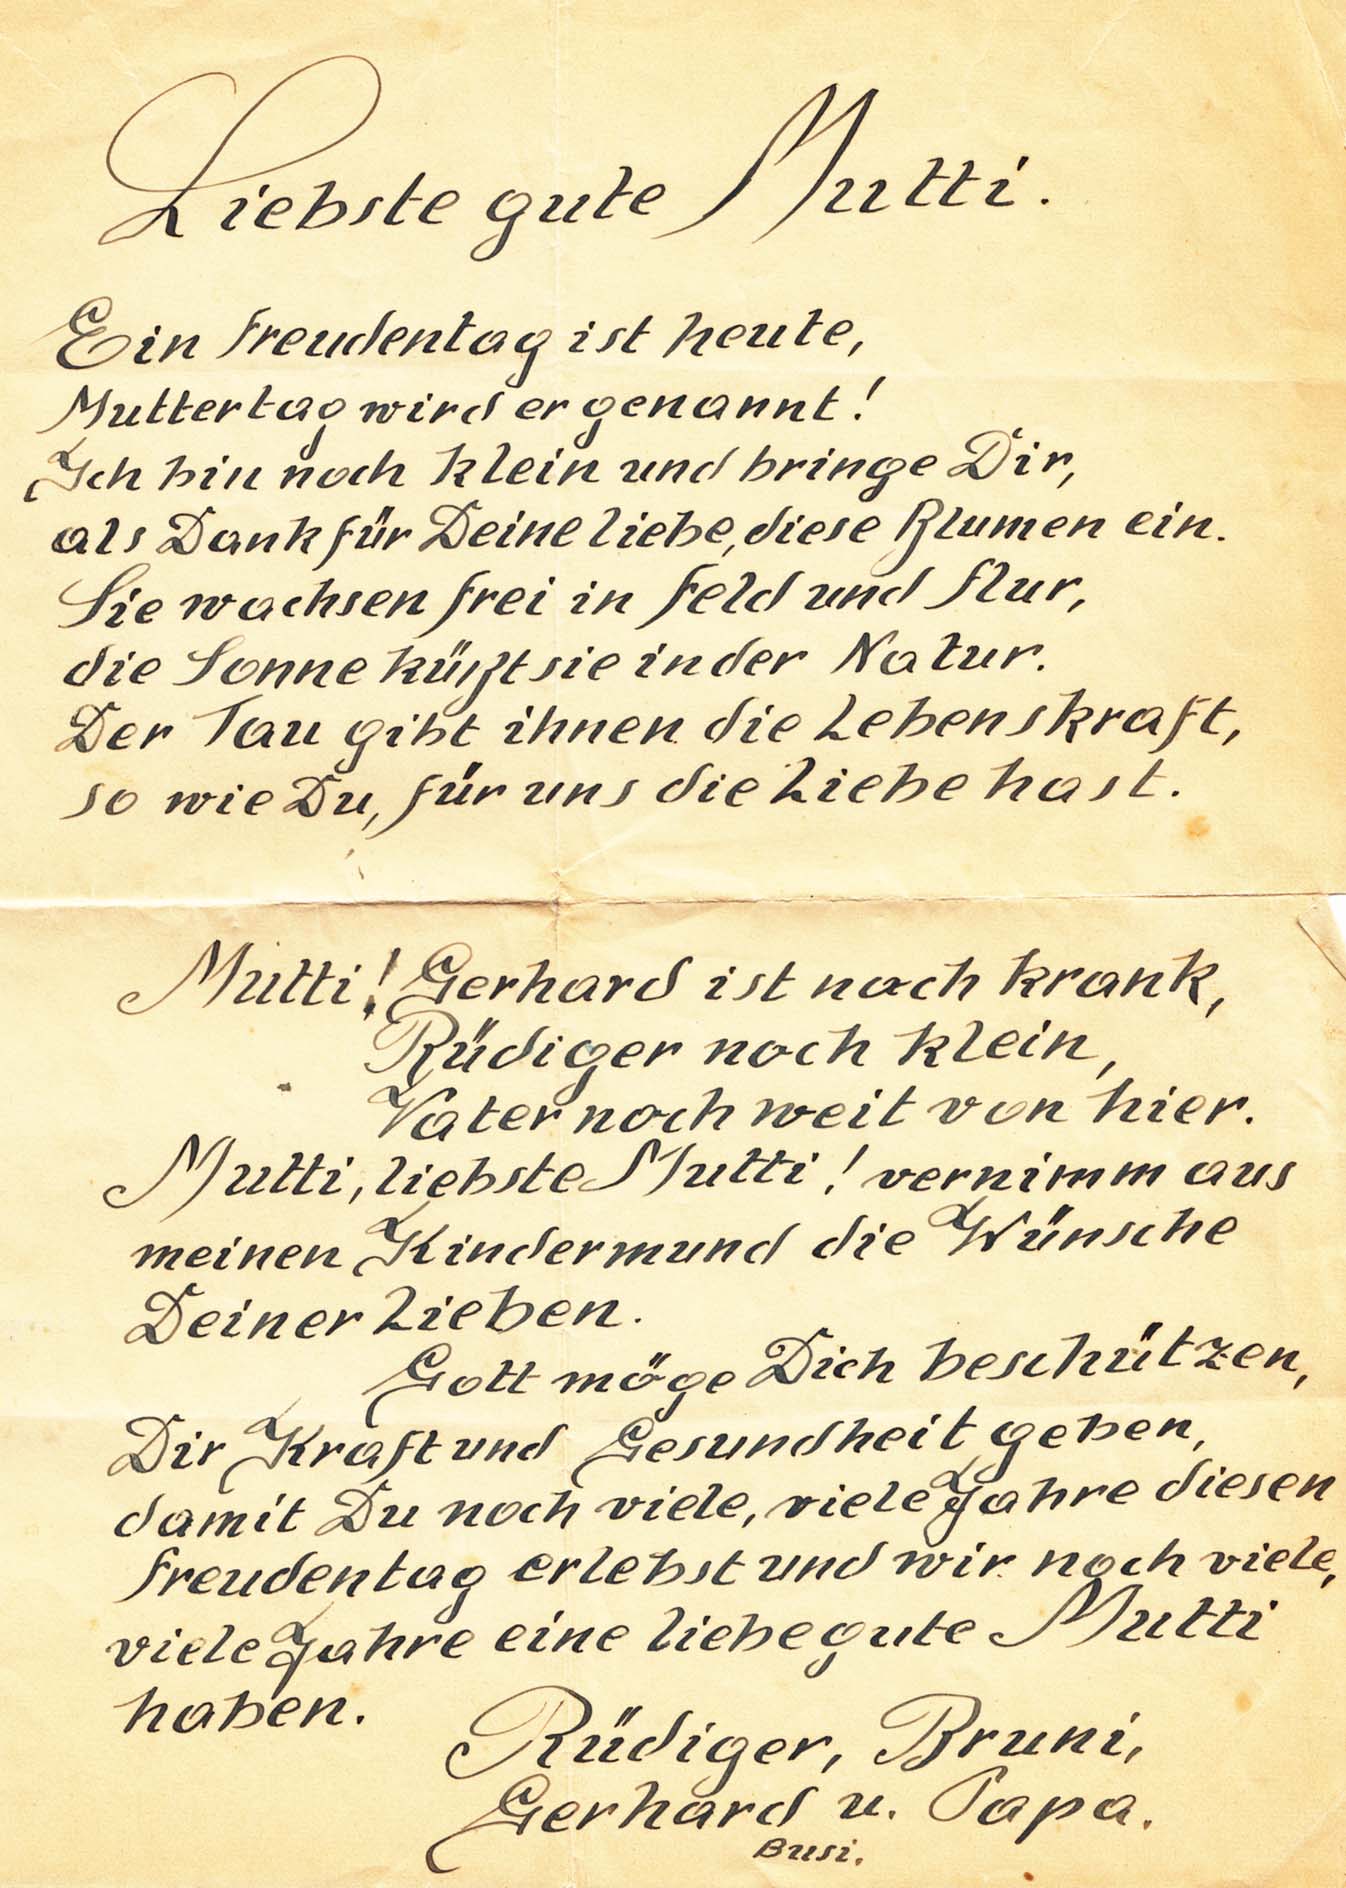 Liebste gute Mutti.
Ein Freudentag ist heute,
Muttertag wird er genannt!
Ich bin noch klein und bringe Dir,
als Dank für Deine Liebe, diese Blumen ein.
Sie wachsen frei in Feld und Flur,
die Sonne küßt sie in der Natur.
Der Tau gibt ihnen die Lebenskraft,
so wie Du, für uns die Liebe hast.
Mutti! Gerhard ist noch krank,
Rüdiger noch klein,
Vater noch weit von hier.
Mutti, liebste Mutti! vernimm aus
meinen Kindermund die Wünsche
Deiner Lieben.
Gott möge Dich beschützen,
Dir Kraft und Gesundheit geben,
damit Du noch viele, viele Jahre diesen
Freudentag erlebst und wir noch viele,
viele Jahre eine liebe gute Mutti
haben.
Rüdiger, Bruni,
Gerhard u. Papa.
Busi.